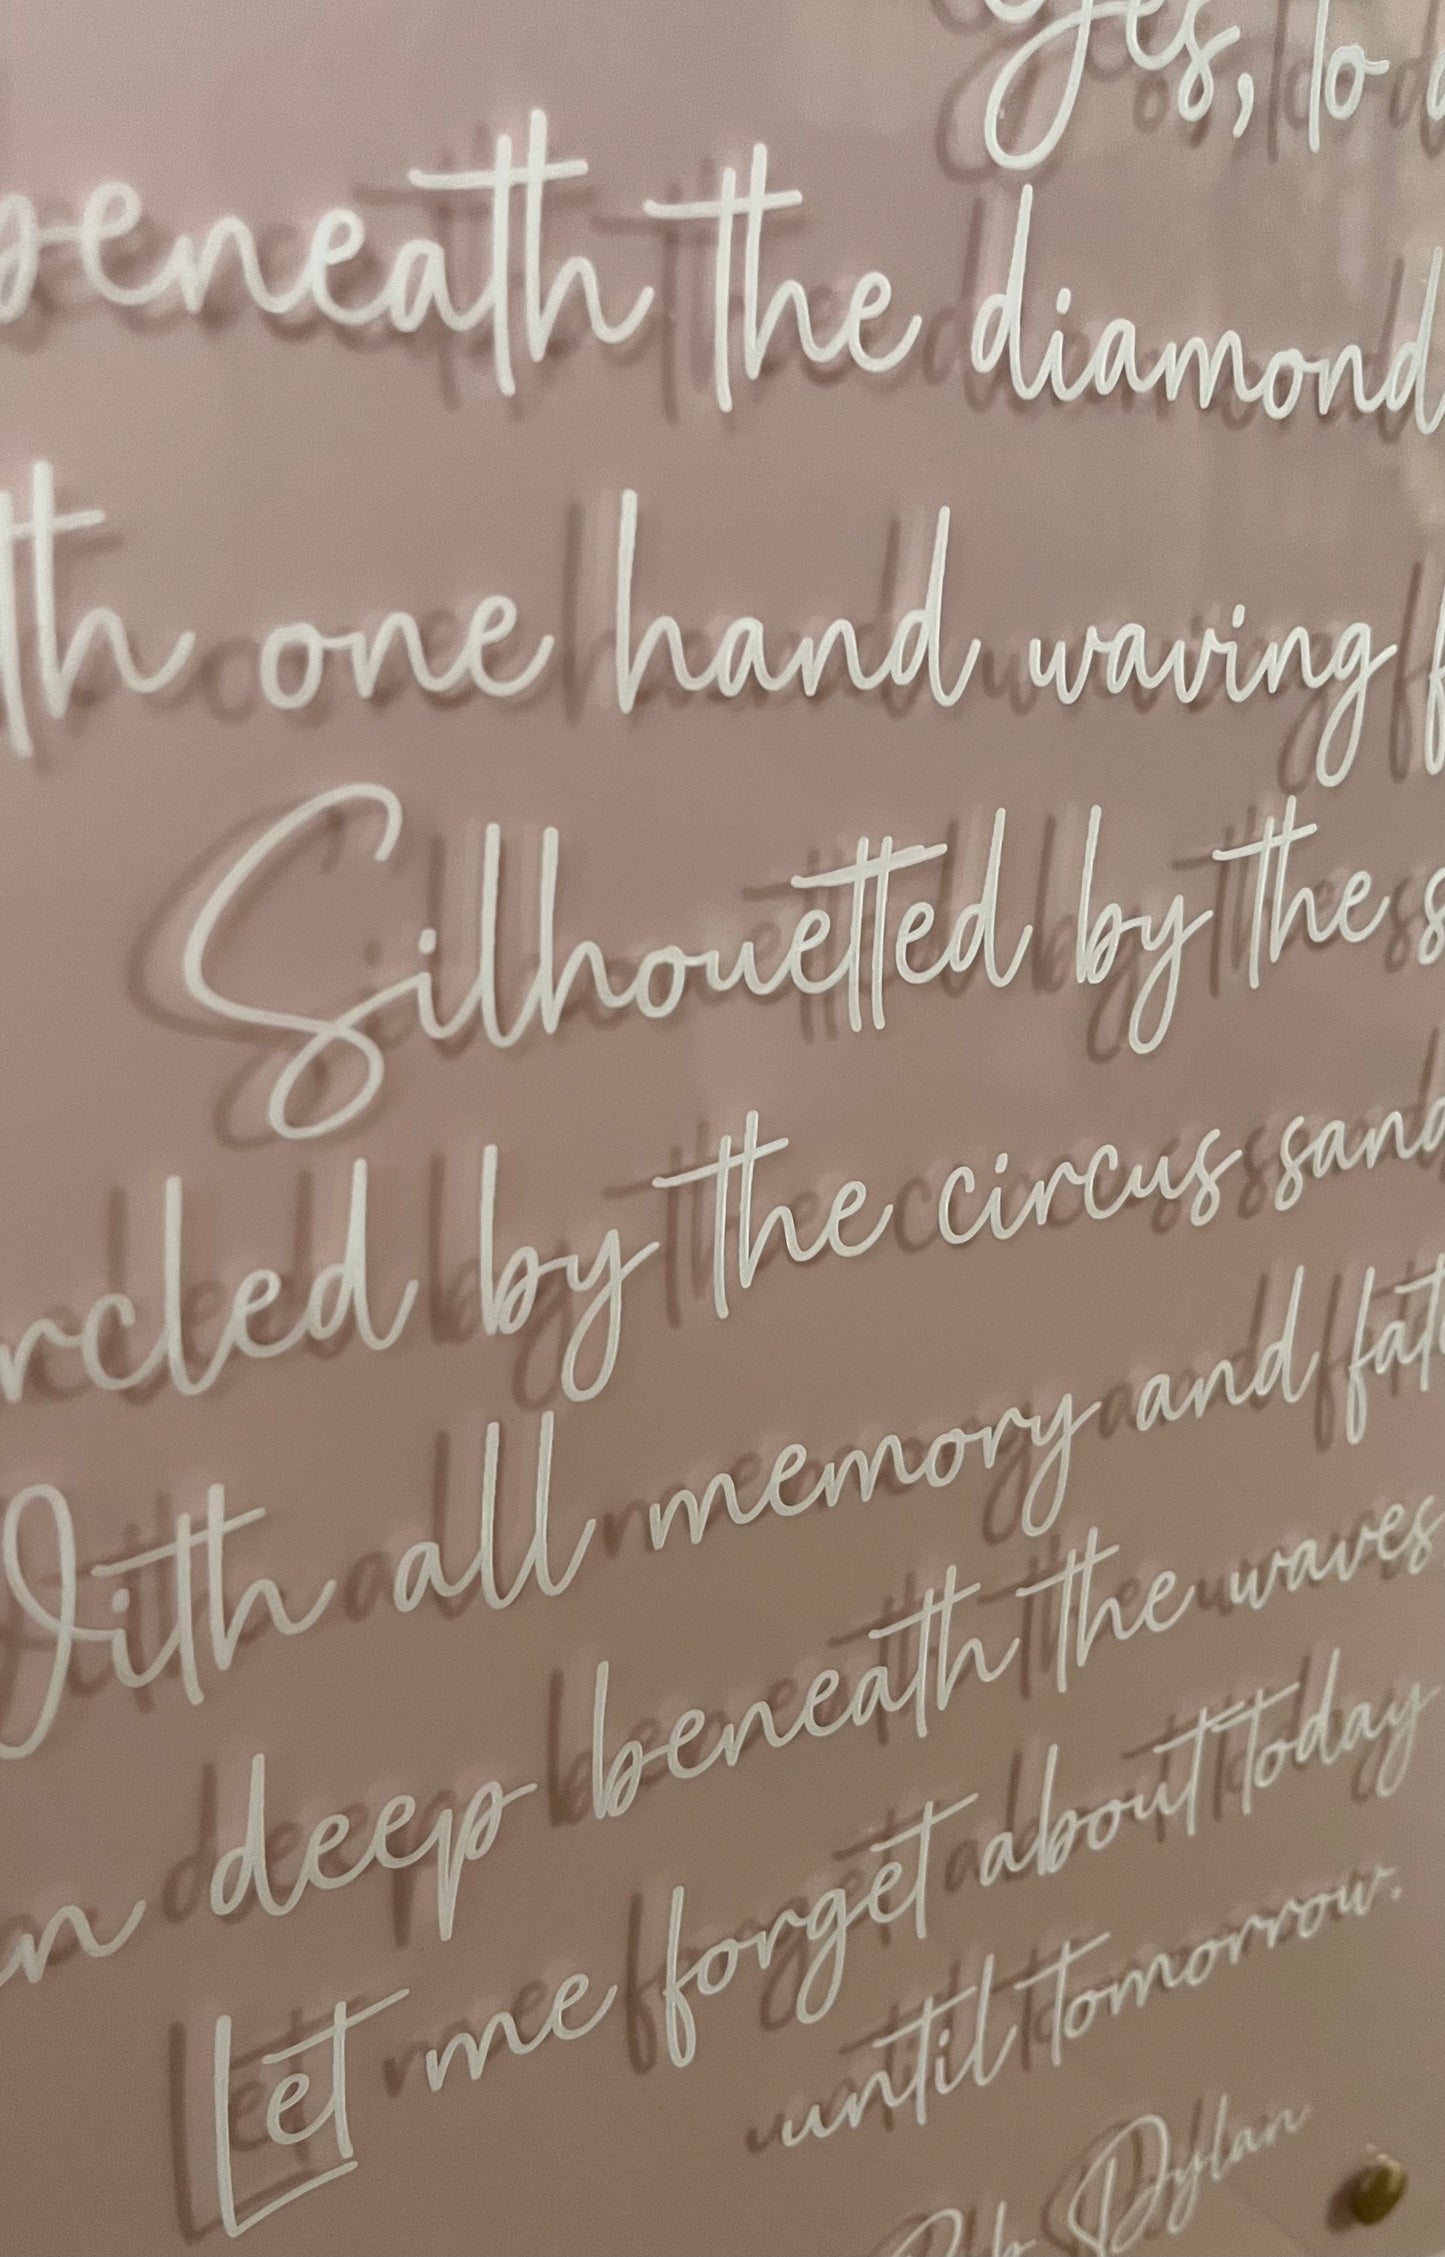 Yes, to
beneath the diamond
th one hand waving f
Silhouetted by the s
rcled by the circus sand
With all memory and fat
n deep beneath the waves
Let me forget about today
until tomorrow.
Bob Dylan